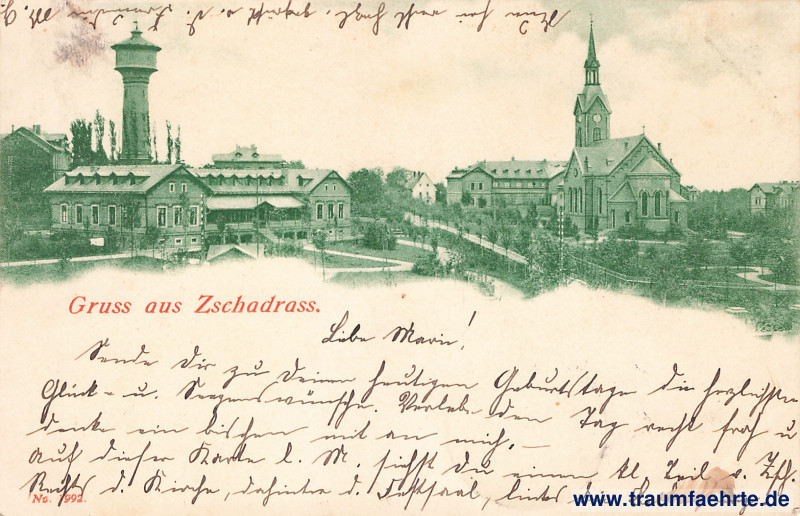 Gruss aus Zschadrass.
Liebe Marie!
Sende Dir zu Deinem heutigen Geburtstage die herzlichsten
Glück- u. Segenswünsche. Verlebe den Tag recht froh u.
denke ein bischen mit an mich. –
Auf dieser Karte l. M. siehst Du einen kl. Teil v. Zsch.
Rechts d. Kirche, dahinter d. Festsaal, links
No. 1992.
www.traumfaehrte.de